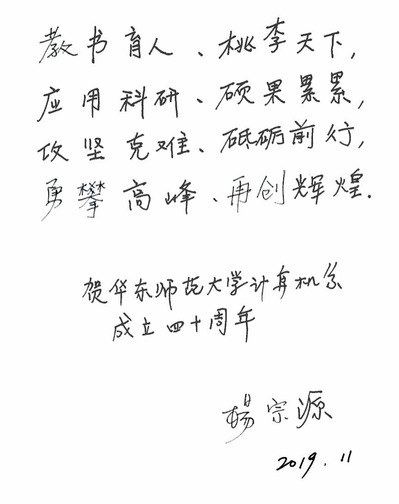 教书育人、桃李天下,
应用科研、硕果累累,
攻坚克难、砥砺前行,
勇攀高峰、再创辉煌.
贺华东师范大学计算机系
成立四十周年
杨宗源
2019.11